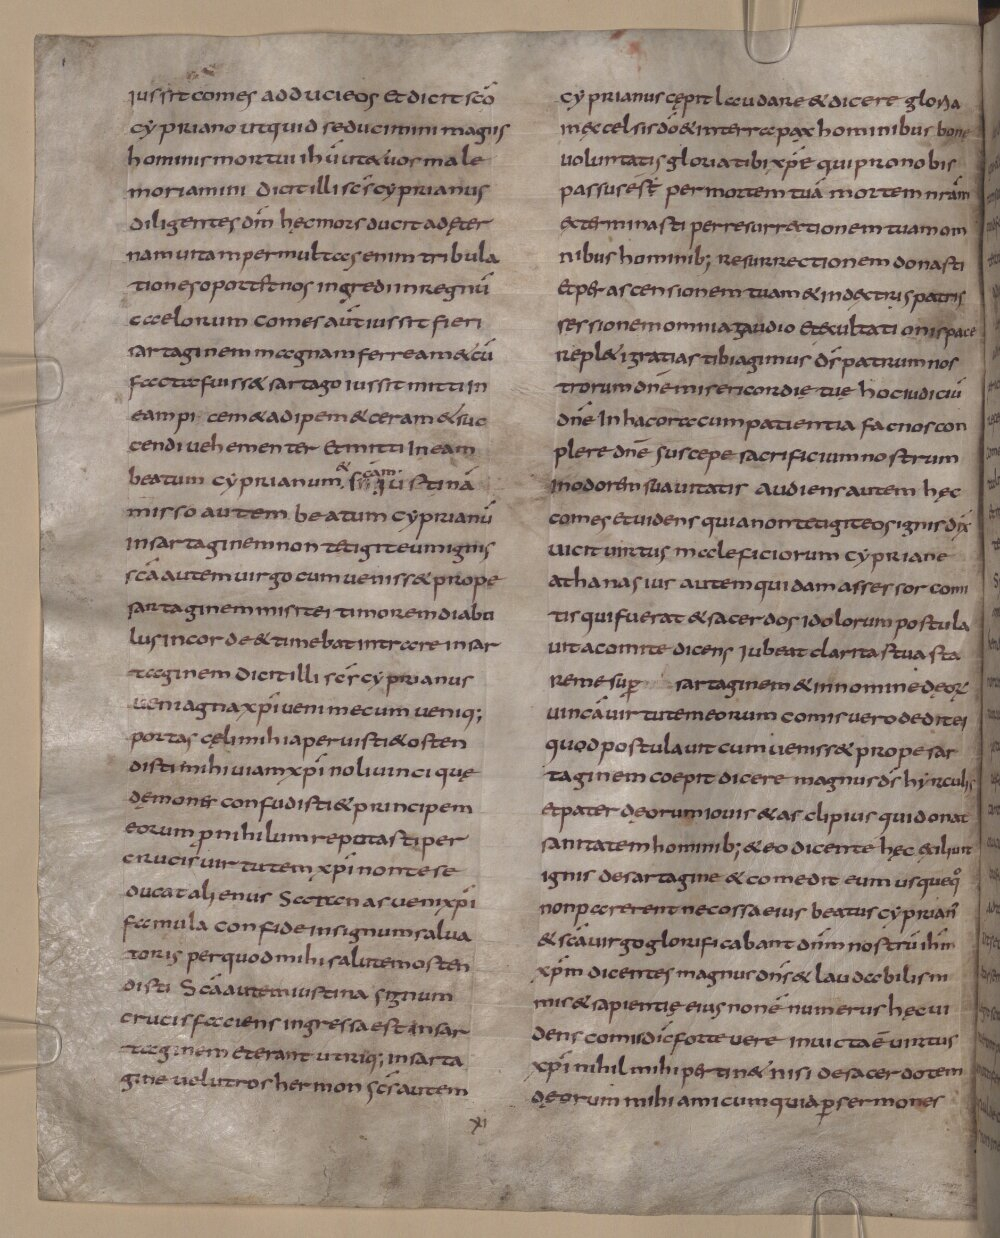 iussit comes adduci eos Et dicit scō
cypriano ut quid seducimini magiis
hominis mortui ihū ut & uos male
moriamini dicit illi scs̄ cyprianus
diligentes dm̄ hęc mors ducit ad ęter
nam uitam per multas enim tribula
tiones oportet nos ingredi in regnū
caelorum comes aut̄ iussit fieri
sartaginem magnam ferream & cū
facta fuiss& sartago iussit mitti in
eam picem & adipem & ceram & suc
cendi uehementer Et mitti In eam
beatum cyprianum & scām iustinā
misso autem beatum cyprianū
in sartaginem non tetigit eum ignis
scā autem uirgo cum ueniss& prope
sartaginem misit ei timorem diabu
lus in corde & timebat intrare in sar
taginem dicit illi scs̄ cyprianus
ueni agna xpī ueni mecum ueniq;
portas cęli mihi aperuisti & osten
disti mihi uiam xpī noli uinci que
demones confudisti & principem
eorum p nihilum reputasti per
crucis uirtutem xpī non te se
ducat alienus Satanas ueni xpī
famula confide in signum salua
toris per quod mihi salutem osten
disti Scā autem iustina signum
crucis faciens ingressa est in sar
taginem et erant utriq; in sarta
gine uelut ros hermon scs̄ autem
xi
cyprianus cępit laudare & dicere gloria
in excelsis dō & in terra pax hominibus bonę
uoluntatis gloria tibi xpē qui pro nobis
passus est per mortem tuā mortem nram̄
exterminasti per resurrectionem tuam om
nibus hominib; resurrectionem donasti
Et per ascensionem tuam & in dextris patris
sessionem omnia gaudio et exultationis pace
repl& gratias tibi agimus ds̄ patrum nos
trorum dn̄e misericordię tuę hoc iudiciū
dn̄e In hac arta cum patientia fac nos con
plere dn̄e suscepe sacrificium nostrum
in odorem suauitatis Audiens autem hęc
comes et uidens quia non tetigit eos ignis dix̄
uicit uirtus maleficiorum cypriane
athanasius autem quidam assessor comi
tis qui fuerat & sacerdos idolorum postula
uit a comite dicens Iubeat claritas tua sta
re me sup sartaginem & in nomine deor
uincā uirtutem eorum comis uero dedit ei
quod postulauit cum ueniss& prope sar
taginem coepit dicere magnus ds̄ hyrculis
Et pater deorum iouis & asclipius qui donat
sanitatem hominib; & eo dicente hęc exiliuit
ignis de sartagine & comedit eum usqueq
non parerent nec ossa eius beatus cyprian̄
& scā uirgo glorificabant dn̄m nostrū ihm̄
xpm̄ dicentes magnus dn̄s & laudabilis ni
mis & sapientię eius non ē numerus hęc ui
dens comis dic̄ forte uere inuicta ē uirtus
xpī nihil mihi pertin& nisi de sacerdotem
deorum mihi amicum quia p sermones